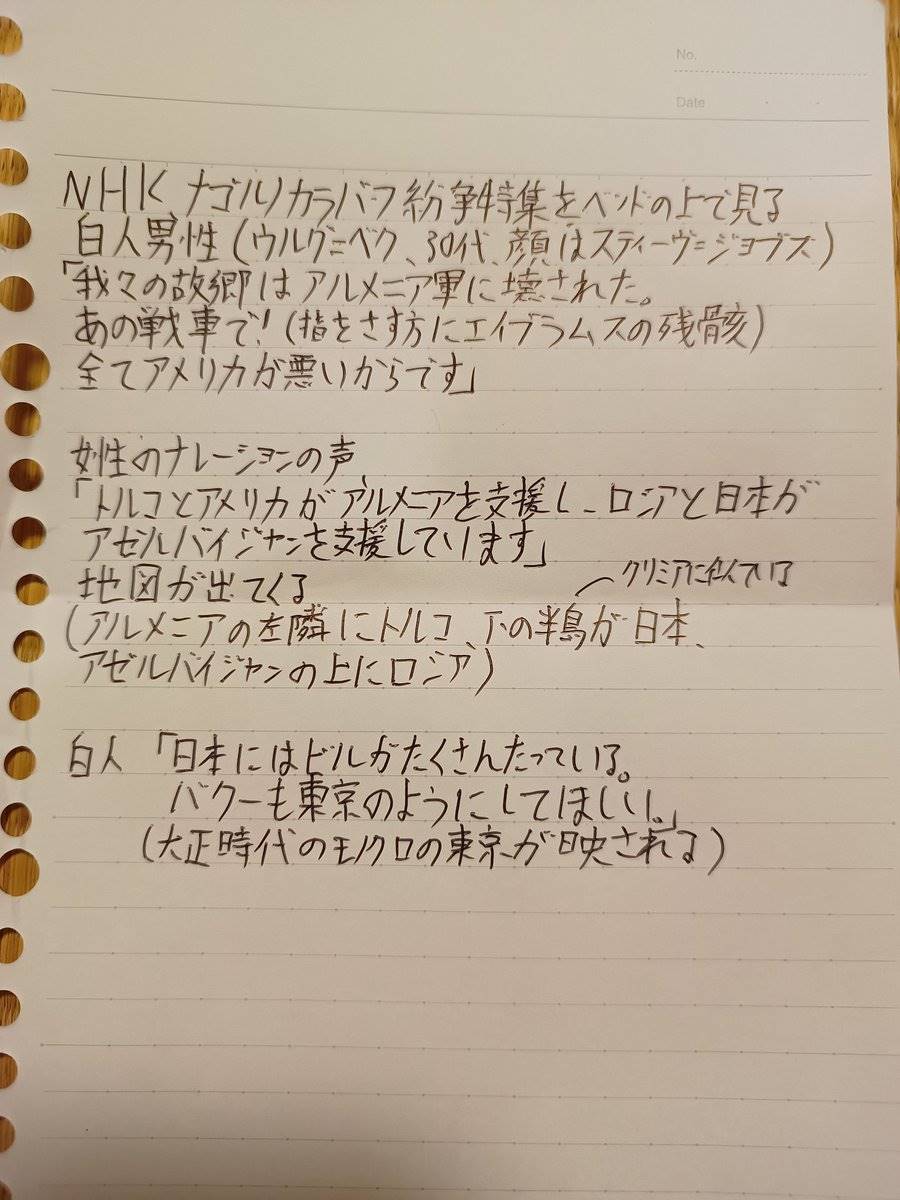 No.
Date
NHK ナゴルノカラバフ紛争特集をベッドの上で見る
白人男性(ウルグ=ベク、30代、顔はスティーヴ=ジョブズ)
「我々の故郷はアルメニア軍に壊された。
あの戦車で!(指をさす方にエイブラムスの残骸)
全てアメリカが悪いからです」
女性のナレーションの声
「トルコとアメリカがアルメニアを支援し、ロシアと日本が
アゼルバイジャンを支援しています」
地図が出てくる
クリミアに似ている
(アルメニアの左隣にトルコ、下の半島が日本、
アゼルバイジャンの上にロシア)
白人「日本にはビルがたくさんたっている。
バクーも東京のようにしてほしい。」
(大正時代のモノクロの東京が映される)